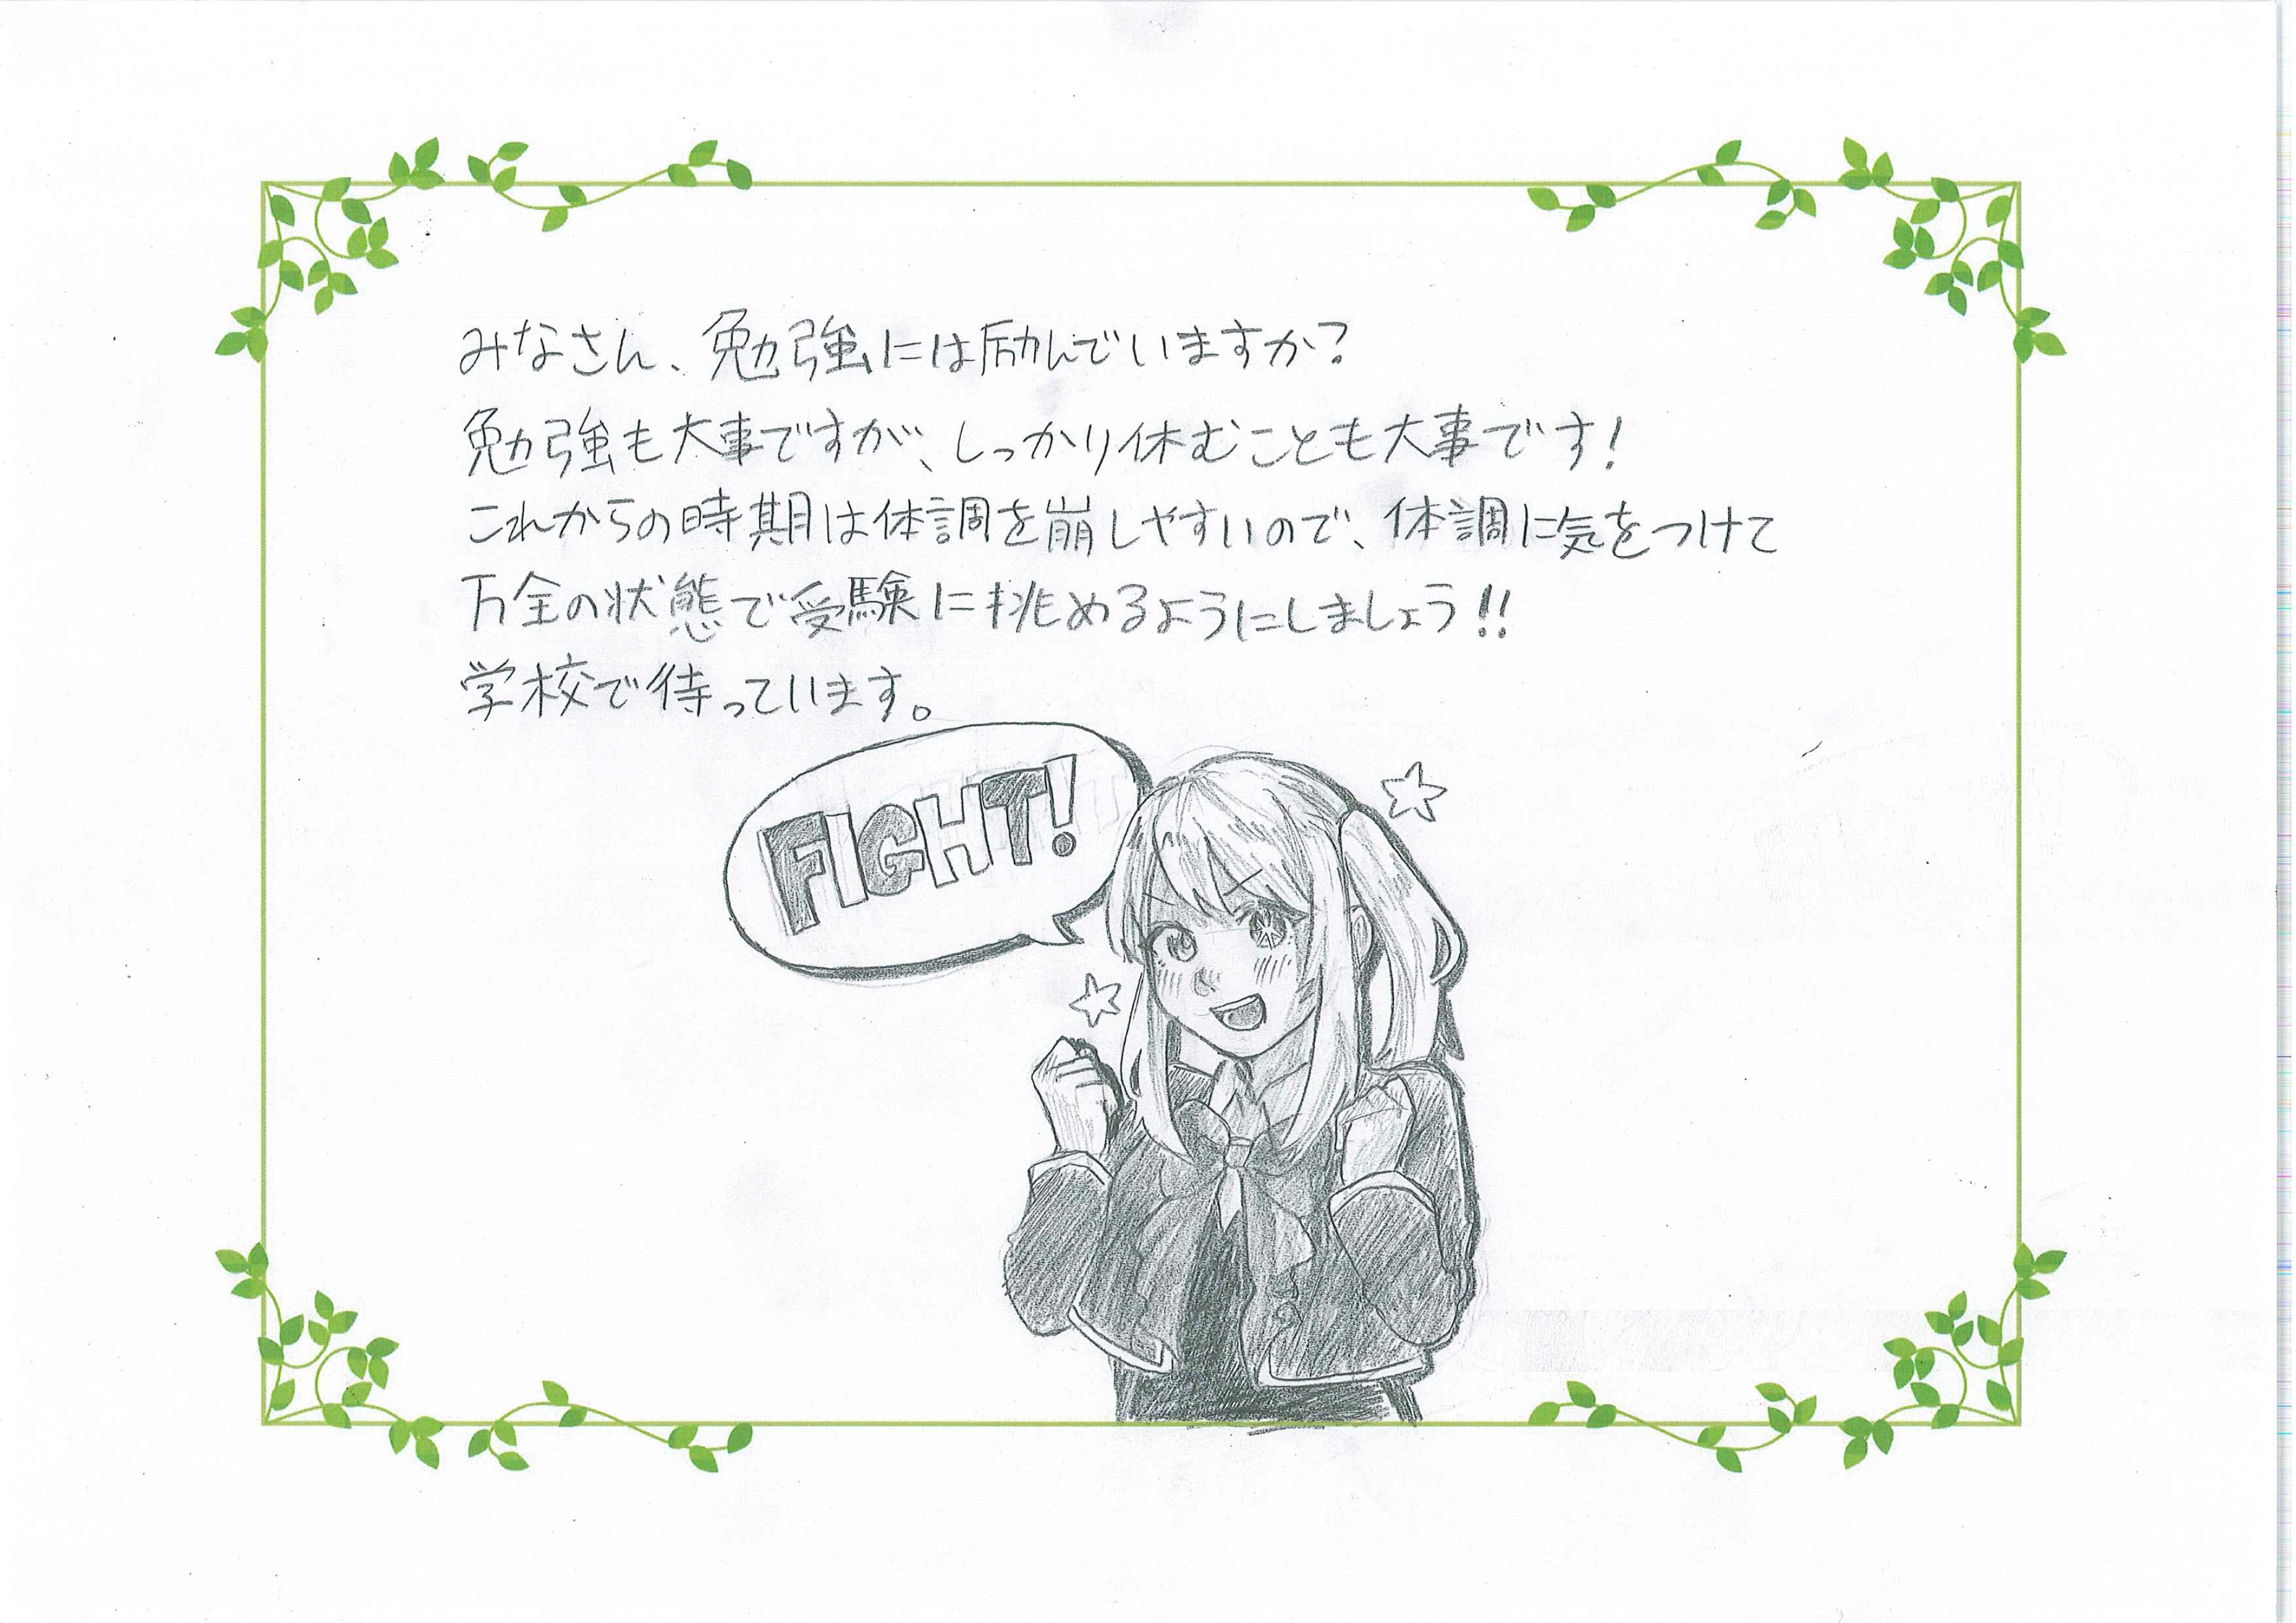 みなさん、勉強には励んでいますか?
勉強も大事ですが、しっかり休むことも大事です!
これからの時期は体調を崩しやすいので、体調に気をつけて
万全の状態で受験に挑めるようにしましょう!!
学校で待っています。
FIGHT!